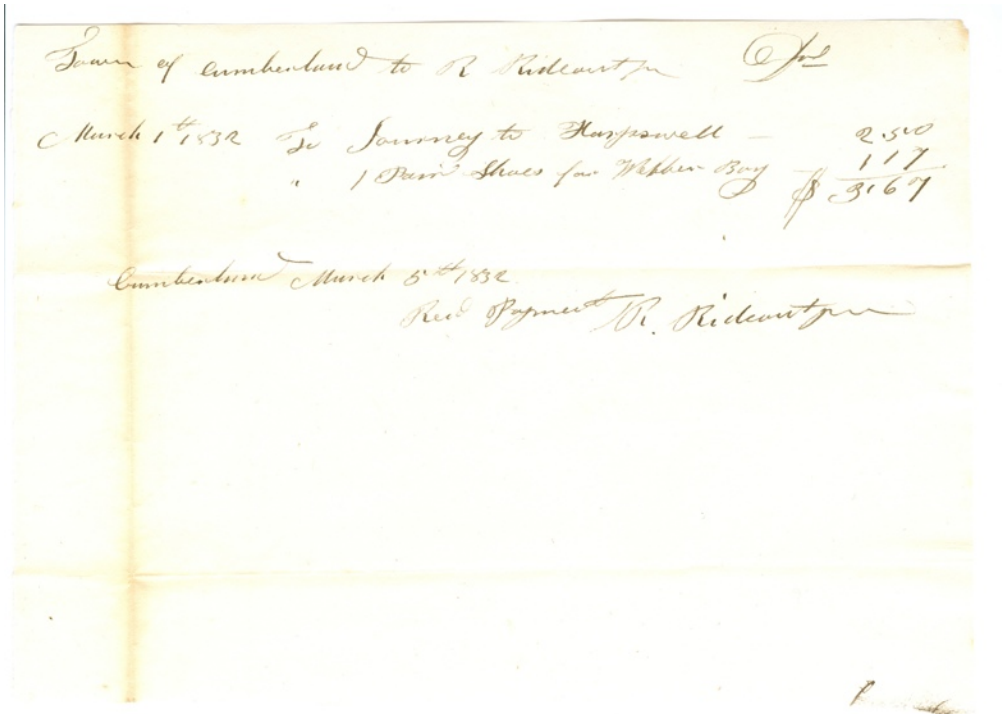 Town of Cumberland to R Rideout Jr Dr
March 1th 1832 To Journey to Harpswell — 2.50
" 1 Pair Shoes for Webber Boy 1 17
$ 3.67
Cumberland March 5th 1832
Recd Payment R. Rideout Jr